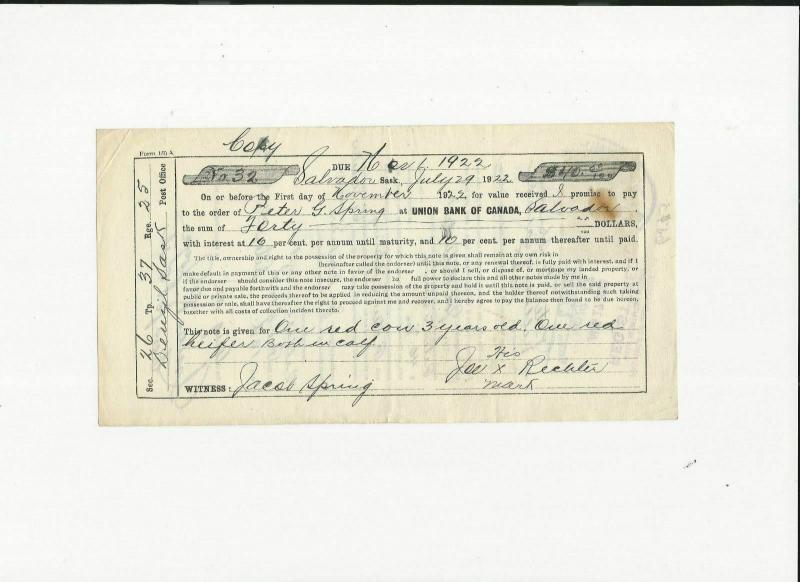 Form 150 A
Copy
DUE Nov 1. 1922
No. 32
$40.00/100
Salvador Sask. July 29 1922
On or before the First day of November 1922 for value received I promise to pay
to the order of Peter G. Spring at UNION BANK OF CANADA, Salvador
the sum of Forty DOLLARS,
with interest at 10 per cent. per annum until maturity, and 10 per cent. per annum thereafter until paid.
The title, ownership and right to the possession of the property for which this note is given shall remain at my own risk in
(hereinafter called the endorser) until this note, or any renewal thereof, is fully paid with interest, and if I
make default in payment of this or any other note in favor of the endorser , or should I sell, or dispose of, or mortgage my landed property, or
if the endorser should consider this note insecure, the endorser ha full power to declare this and all other notes made by me in
favor due and payable forthwith and the endorser may take possession of the property and hold it until this note is paid, or sell the said property at
public or private sale, the proceeds thereof to be applied in reducing the amount unpaid thereon, and the holder thereof notwithstanding such taking
possession or sale, shall have thereafter the right to proceed against me and recover, and I hereby agree to pay the balance then found to be due hereon,
together with all costs of collection incident thereto.
This note is given for One red cow 3 years old. One red
heifer Both in calf.
His
Joe X Rechter
mark
WITNESS: Jacob Spring
Sec. 26 Tp. 37 Rge. 25
Denzil Sask Post Office